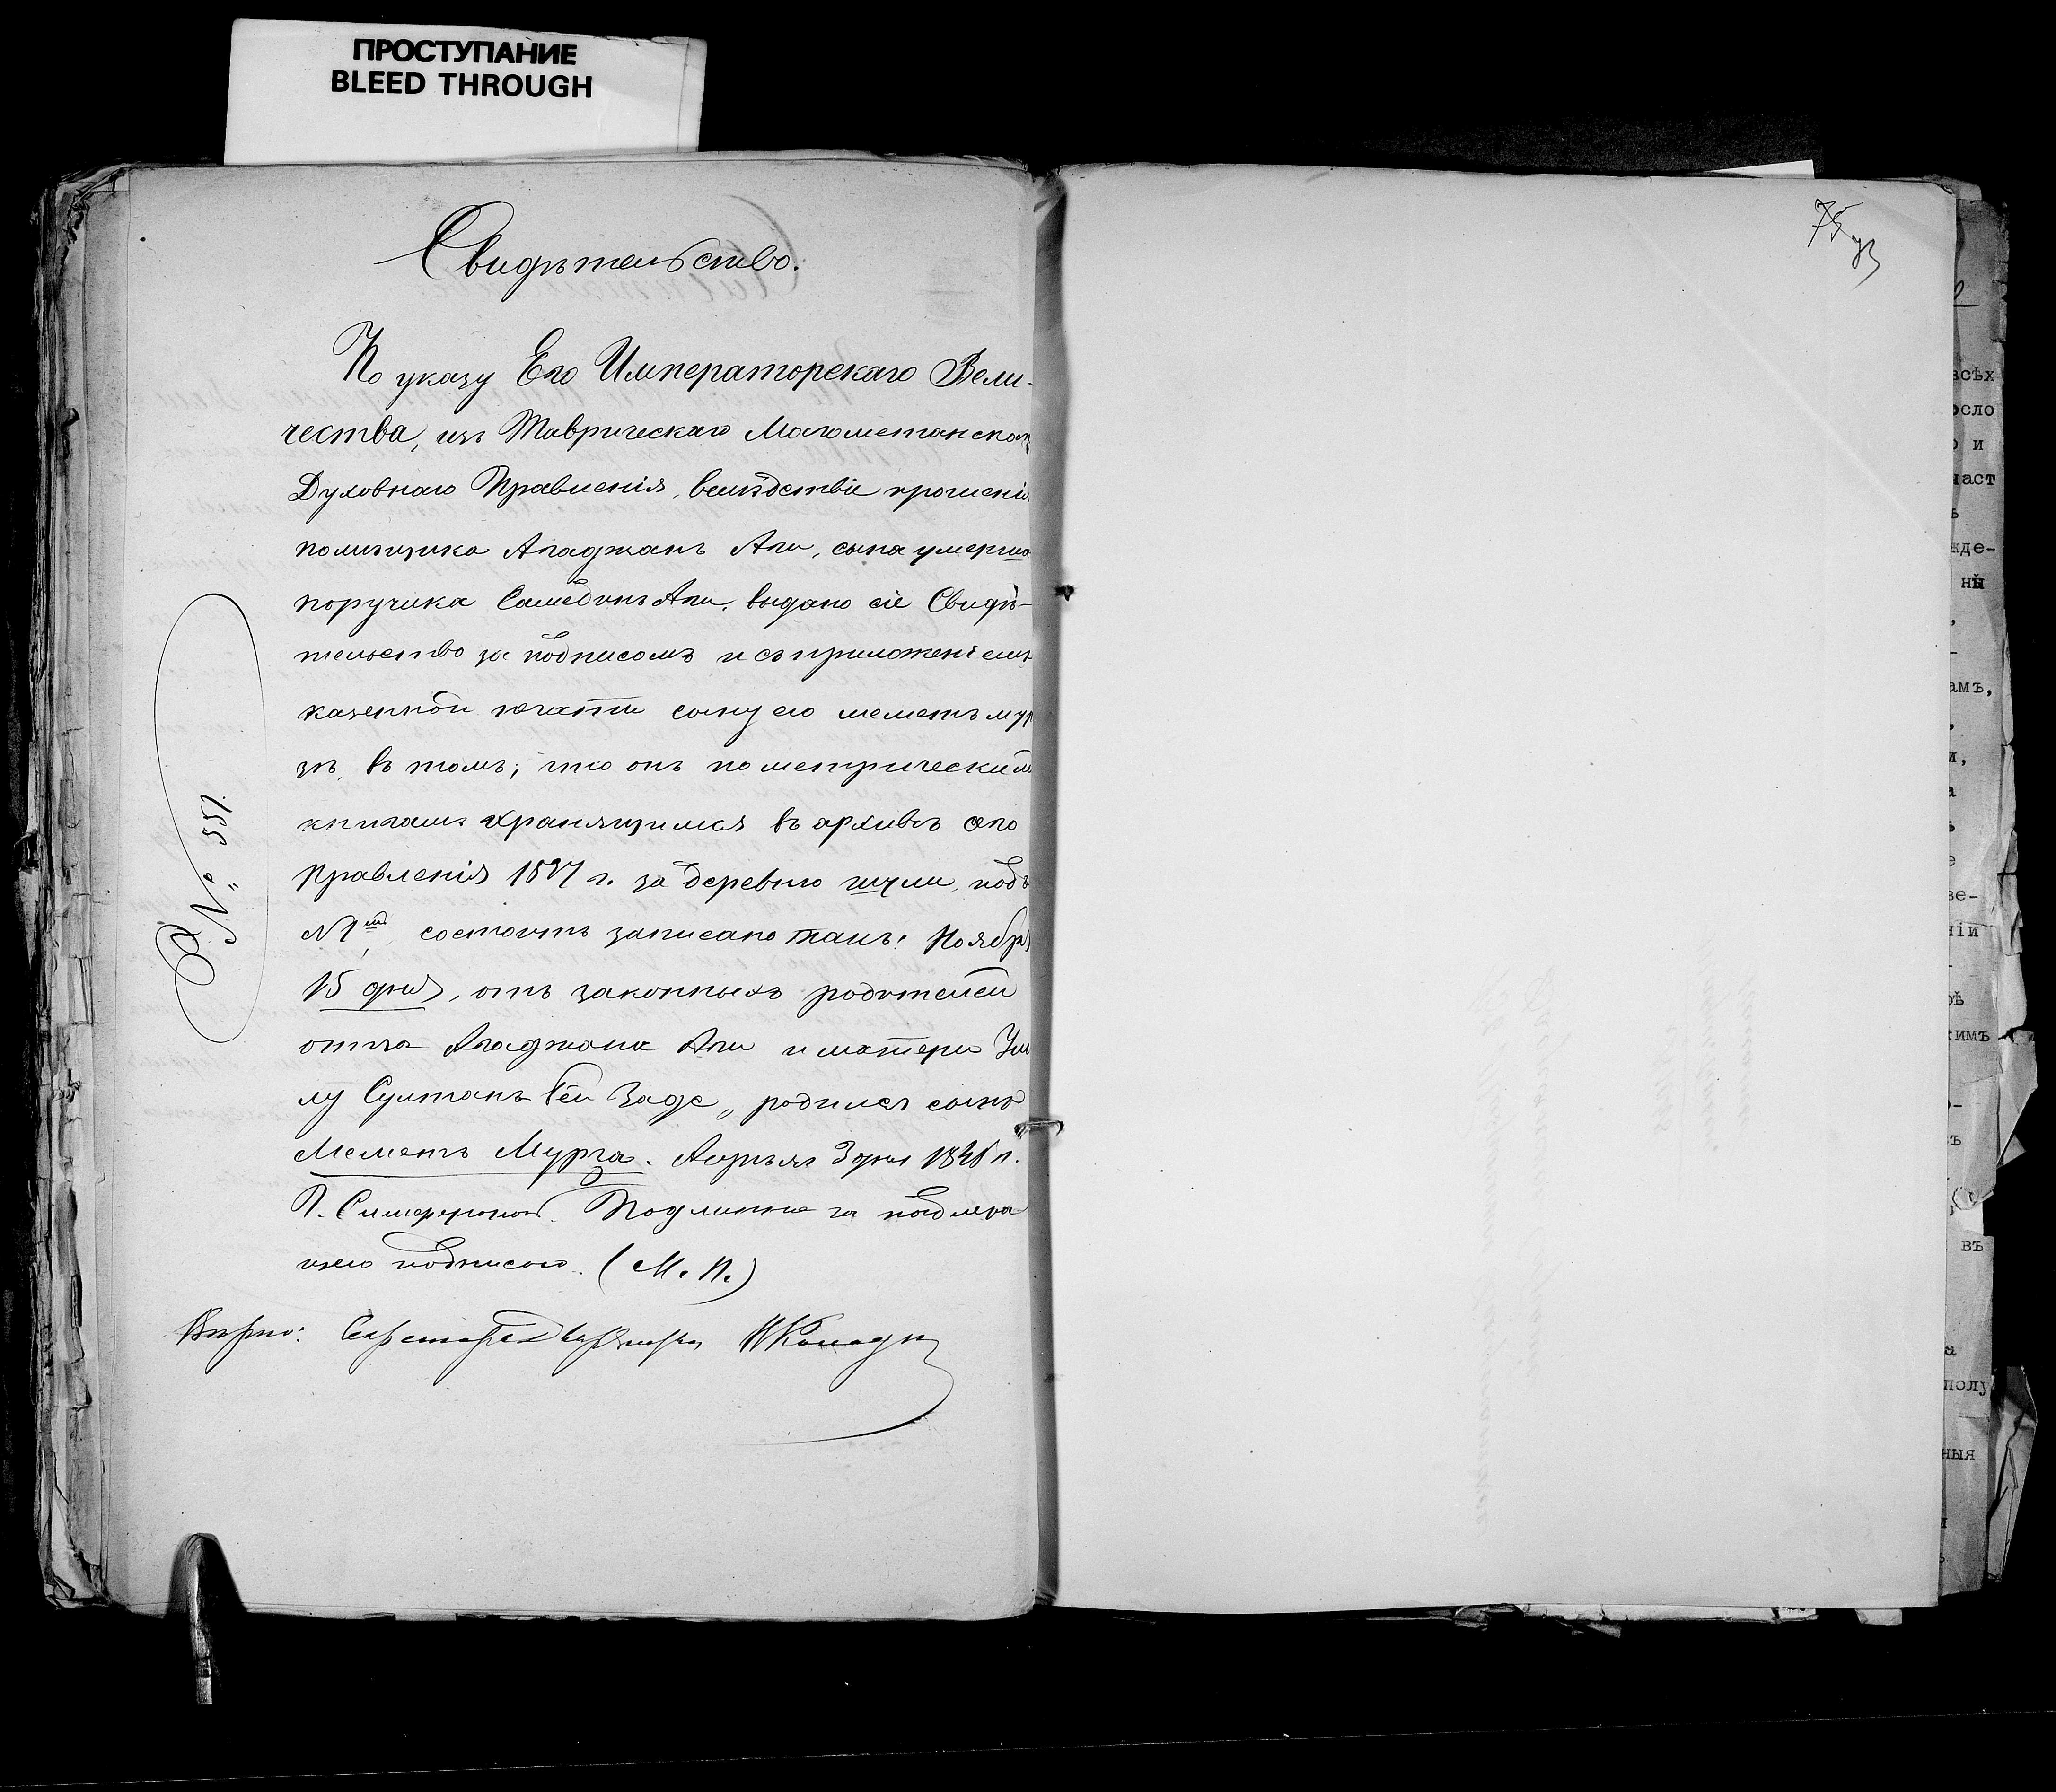 ПРОСТУПАНИЕ
BLEED THROUGH
Свидѣтельство.
По указу Его Императорскаго Вели-
чества, изъ Таврическаго Магометанскаго
Духовнаго Правленія, вслѣдствіе прошенія
помѣщика Агаджанъ Аги, сына умерша
поручика Аги, выдано сіе Свидѣ-
тельство за подписомъ и съ приложеніемъ
казенной печати сыну его Меметъ Мур
зѣ, въ томъ, что онъ по метрическимъ
книгамъ хранящимся въ архивѣ сего
Правленія г. за деревню подъ
№ 1мъ состоитъ записано такъ: Ноября
15 дня, отъ законныхъ родителей
отца Агаджана Аги и матери Ум
лу Султанъ Бей Заде, родился сынъ
Меметъ Мурза. 3 дня г.
Г. Симферополь. Подлинное за надлежа
щею подписью. (М. П.)
Вѣрно: Секретарь
№ 551.
75
всѣх
осло
и
част
жде-
ны
амъ,
и,
а
ве-
ніи
кимъ
въ
а
полу
ныя